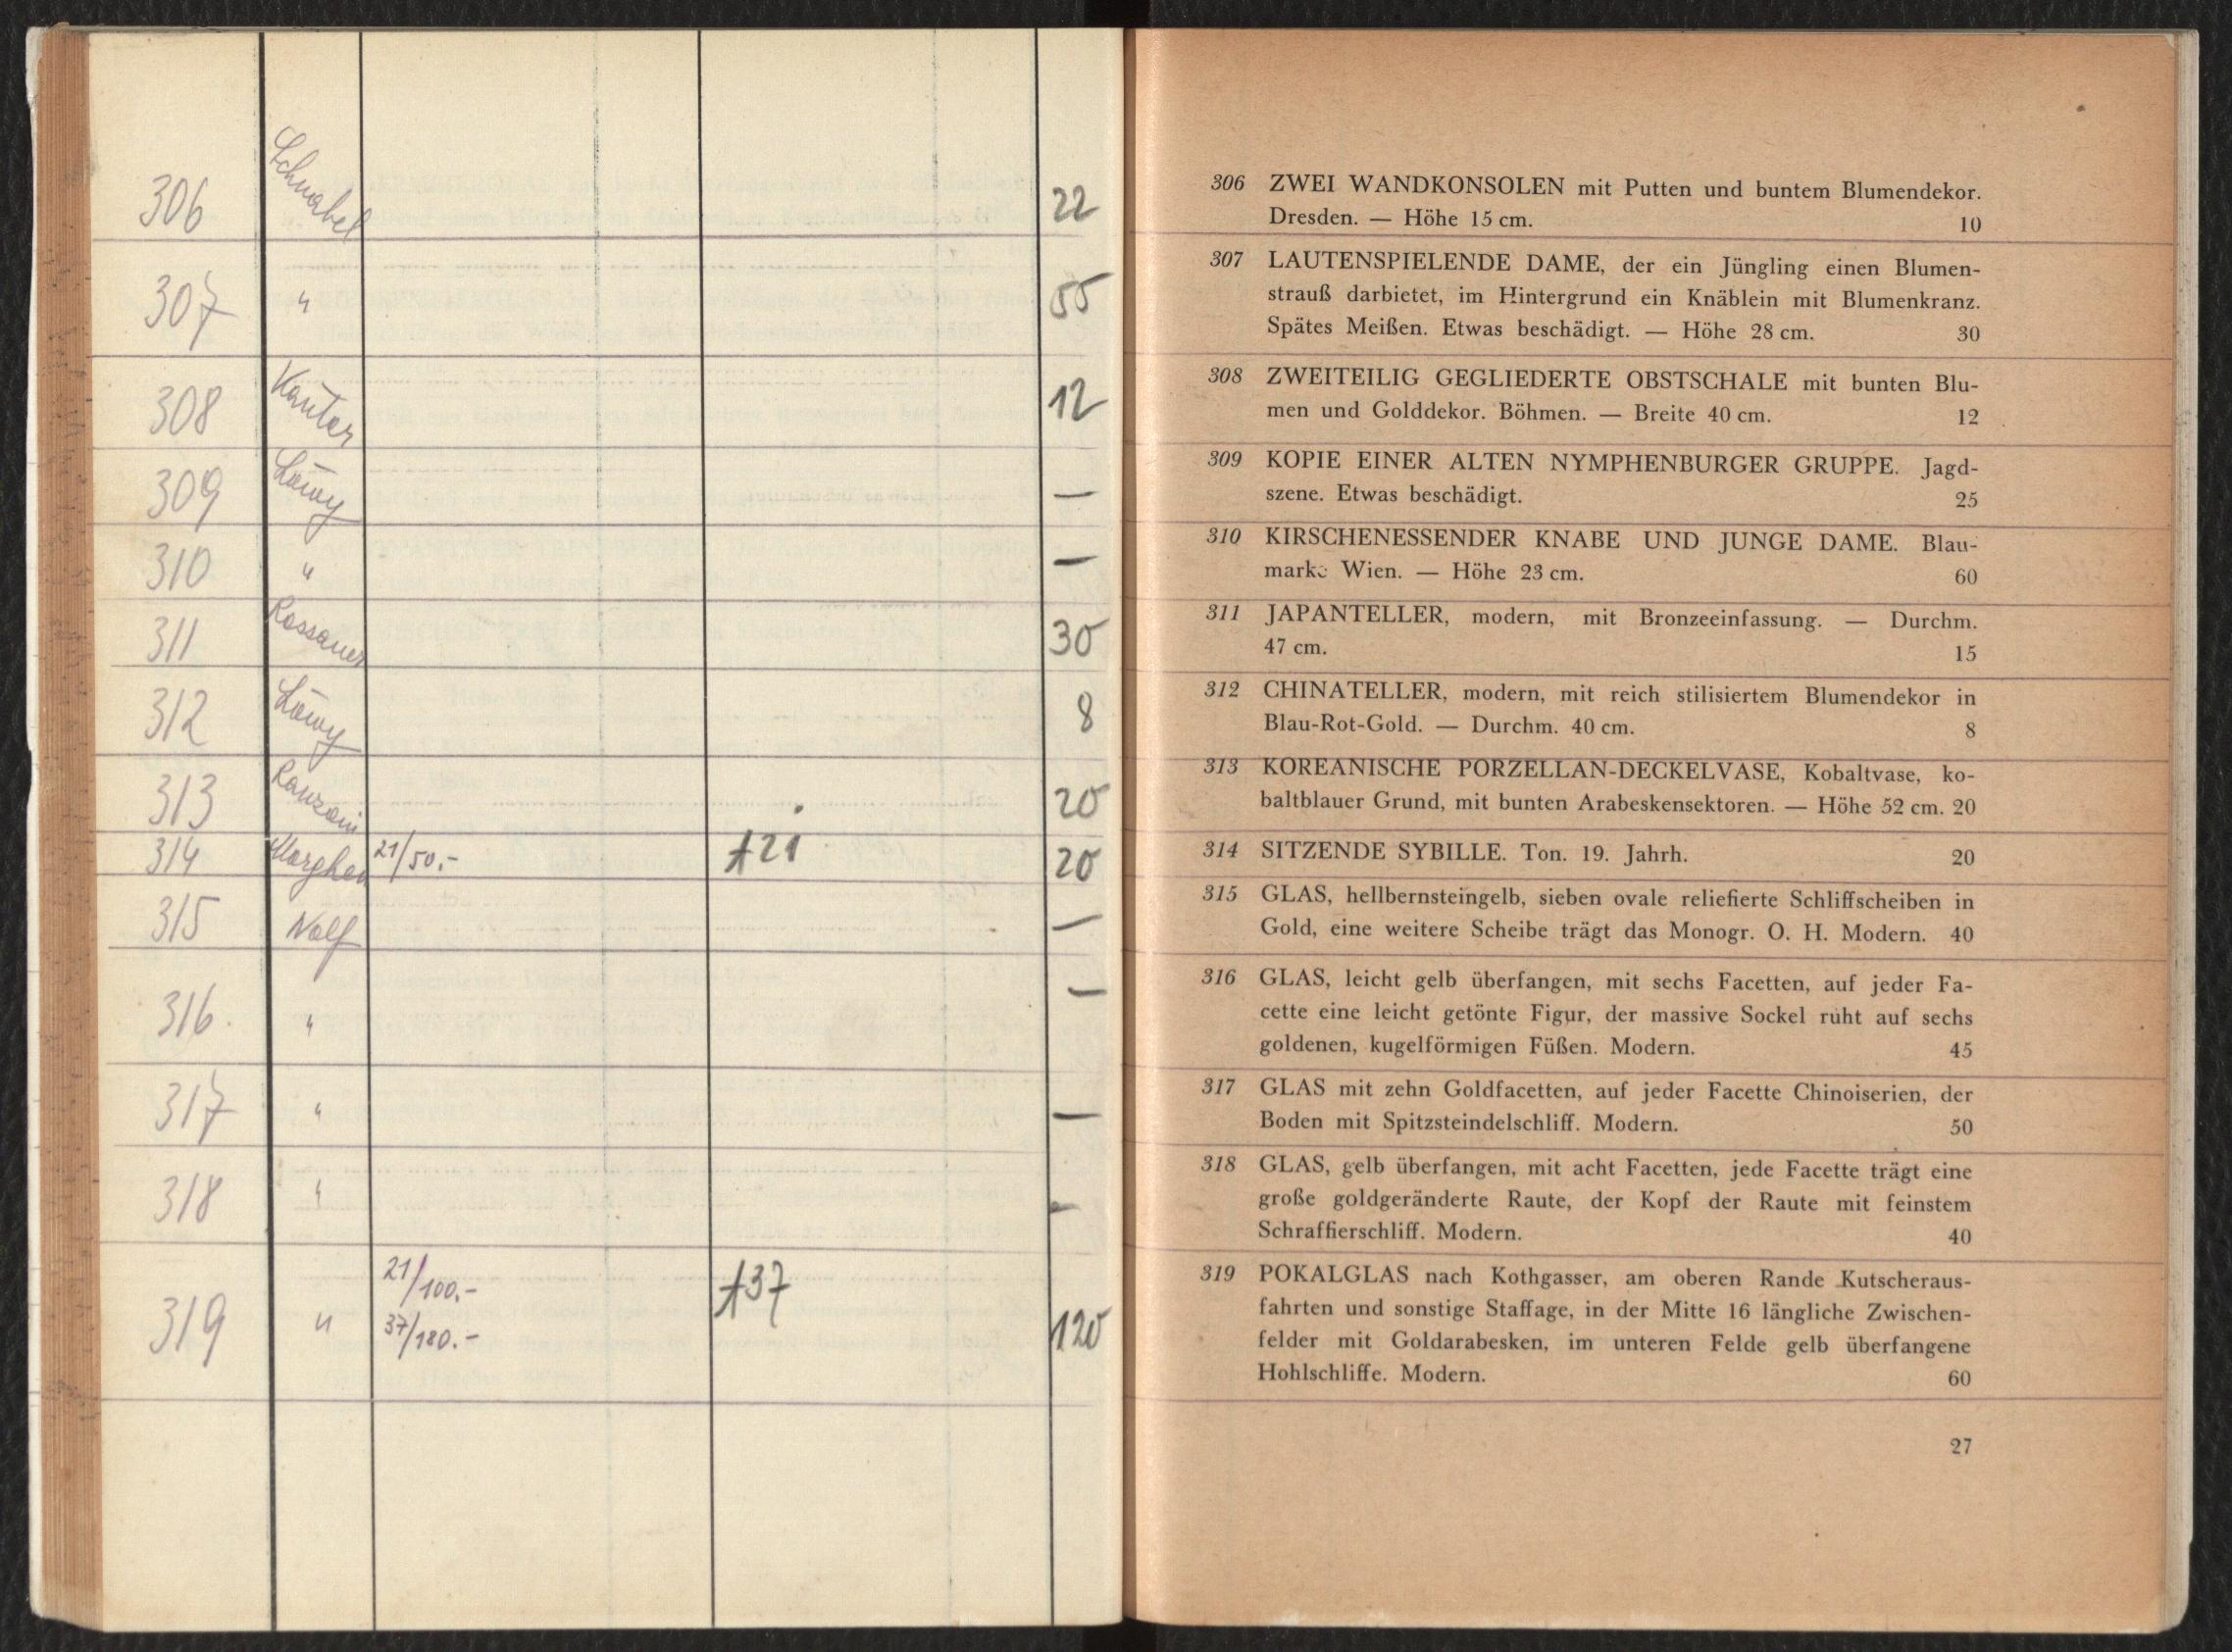 306 Schnabel 22
307 " 55
308 Kanter 12
309 Löwy —
310 " —
311 Rossauer 30
312 Löwy 8
313 Ranzoni 20
314 21/50.- +21 20
315 —
316. " —
317 " —
318 " —
319 " 21/100.- +37 120
37/180.-
306 ZWEI WANDKONSOLEN mit Putten und buntem Blumendekor.
Dresden. — Höhe 15 cm. 10
307 LAUTENSPIELENDE DAME, der ein Jüngling einen Blumen-
strauß darbietet, im Hintergrund ein Knäblein mit Blumenkranz.
Spätes Meißen. Etwas beschädigt. — Höhe 28 cm. 30
308 ZWEITEILIG GEGLIEDERTE OBSTSCHALE mit bunten Blu-
men und Golddekor. Böhmen. — Breite 40 cm. 12
309 KOPIE EINER ALTEN NYMPHENBURGER GRUPPE. Jagd-
szene. Etwas beschädigt. 25
310 KIRSCHENESSENDER KNABE UND JUNGE DAME. Blau-
marke Wien. — Höhe 23 cm. 60
311 JAPANTELLER, modern, mit Bronzeeinfassung. — Durchm.
47 cm. 15
312 CHINATELLER, modern, mit reich stilisiertem Blumendekor in
Blau-Rot-Gold. — Durchm. 40 cm. 8
313 KOREANISCHE PORZELLAN-DECKELVASE, Kobaltvase, ko-
baltblauer Grund, mit bunten Arabeskensektoren. — Höhe 52 cm. 20
314 SITZENDE SYBILLE. Ton. 19. Jahrh. 20
315 GLAS, hellbernsteingelb, sieben ovale reliefierte Schliffscheiben in
Gold, eine weitere Scheibe trägt das Monogr. O. H. Modern. 40
316 GLAS, leicht gelb überfangen, mit sechs Facetten, auf jeder Fa-
cette eine leicht getönte Figur, der massive Sockel ruht auf sechs
goldenen, kugelförmigen Füßen. Modern. 45
317 GLAS mit zehn Goldfacetten, auf jeder Facette Chinoiserien, der
Boden mit Spitzsteindelschliff. Modern. 50
318 GLAS, gelb überfangen, mit acht Facetten, jede Facette trägt eine
große goldgeränderte Raute, der Kopf der Raute mit feinstem
Schraffierschliff. Modern. 40
319 POKALGLAS nach Kothgasser, am oberen Rande Kutscheraus-
fahrten und sonstige Staffage, in der Mitte 16 längliche Zwischen-
felder mit Goldarabesken, im unteren Felde gelb überfangene
Hohlschliffe. Modern. 60
27